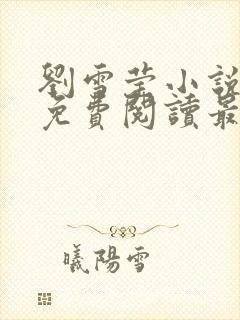 劉雪瑩小說
免費閱讀最
曦陽雪